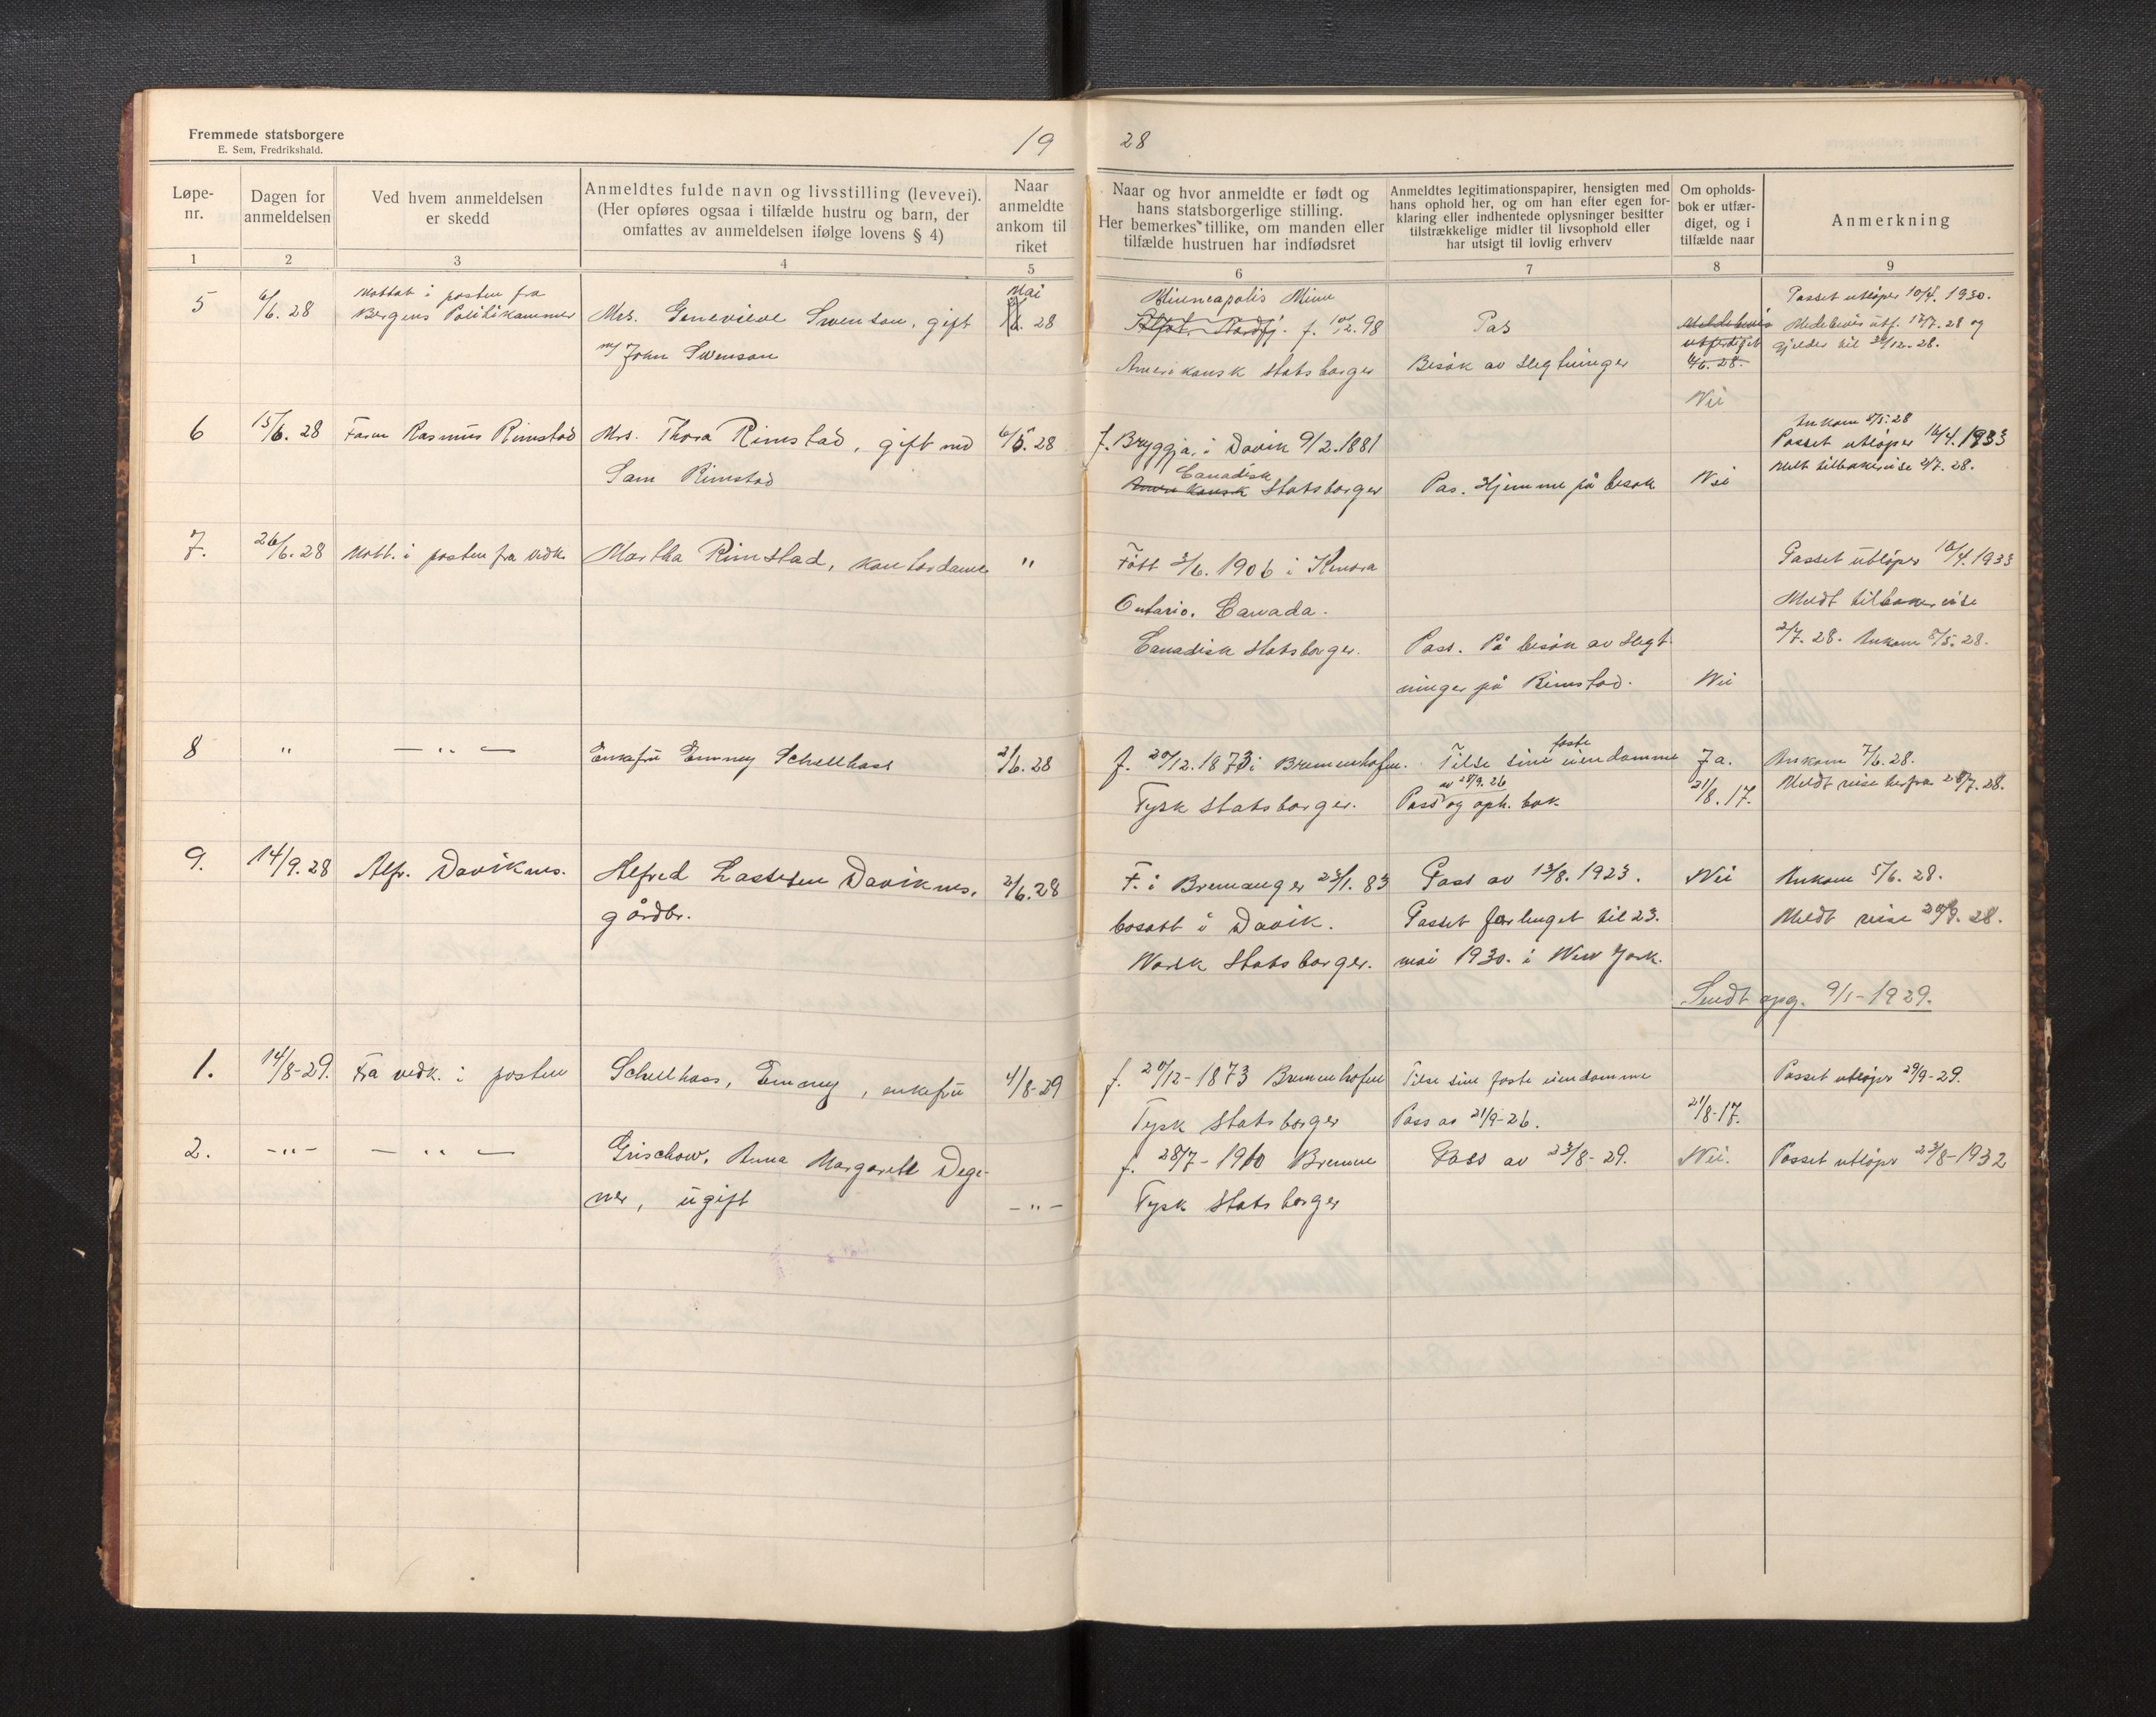 Fremmede statsborgere
E. Sem, Fredrikshald.
19 28
Løpe-
nr.
Dagen for
anmeldelsen
Ved hvem anmeldelsen
er skedd
Anmeldtes fulde navn og livsstilling (levevei).
(Her opføres ogsaa i tilfælde hustru og barn, der
omfattes av anmeldelsen ifølge lovens § 4)
Naar
anmeldte
ankom til
riket
Naar og hvor anmeldte er født og
hans statsborgerlige stilling.
Her bemerkes tillike, om manden eller
tilfælde hustruen har indfødsret
Anmeldtes legitimationspapirer, hensigten med
hans ophold her, og om han efter egen for-
klaring eller indhentede oplysninger besitter
tilstrækkelige midler til livsophold eller
har utsigt til lovlig erhverv
Om opholds-
bok er utfær-
diget, og i
tilfælde naar
Anmerkning
1 2 3 4 5 6 7 8 9
5
6/6. 28
Mottat i posten fra
Bergens Politikammer
Mrs. Genevieve Swenson, gift
m/ John Swenson
Mai
28
Minneapolis Minn
f. 10/12. 98
Amerikansk Statsborger
Pas
Besök av Slegtninger
Meldebevis
utferdiget
6/6. 28.
Nei
Passet utlöper 10/4. 1930.
Medebevis utf. 12/7. 28 og
gjelder til 24/12. 28.
6
15/6. 28
Faren Rasmus Rimstad
Mrs. Thora Rimstad, gift md
Sam Rimstad
6/5. 28
f. Bryggja, i Davik 9/2. 1881
Canadisk
Amerikansk Statsborger
Pas. Hjemme på besøk
Nei
Ankom 8/5. 28
Passet utlöper 16/4. 1933
Meldt tilbakereise 2/7. 28.
7.
26/6. 28
Mott. i posten fra vedk.
Martha Rimstad, kontordame
"
Født 3/6. 1906 i Kenora
Ontario. Canada.
Canadisk Statsborger.
Pass. På besök av slegt-
ninger på Rimstad.
Nei
Passet utlöper 16/4. 1933
Meldt tilbakereise
2/7. 28. Ankom 8/5. 28.
8
"
— " —
Enkefru Emmy Schellhass
2/6. 28
f. 20/12. 1873 i Bremenhafen.
Tysk Statsborger.
Tilse sine faste eiendomme
av 28/9. 26
Pass og oph. bok
Ja.
21/8. 17.
Ankom 7/6. 28.
Meldt reise herfra 28/7. 28.
9.
14/9. 28
Alfr. Daviknes.
Alfred Lassesen Daviknes,
gårdbr.
2/6. 28
F. i Bremanger 23/1. 83
bosatt i Davik.
Norsk Statsborger.
Pass av 13/8. 1923.
Passet forlenget til 23.
mai 1930. i New York.
Nei
Ankom 5/6. 28.
Meldt reise 20/9. 28.
Sendt opg. 9/1-1929.
1.
14/8-29.
Fra vedk. i posten
Schellhass, Emmy, enkefru
4/8-29
f. 20/12-1873 Bremenhafen
Tysk Statsborger
Tilse sine faste eiendomme
Pass av 21/9-26.
21/8-17.
Passet utlöper 29/9-29.
2.
-"-
— " —
Grischow, Anna Margarete Dege-
ner, ugift
-"-
f. 28/7-1910 Bremen
Tysk Statsborger
Pass av 23/8-29.
Nei.
Passet utlöper 23/8-1932